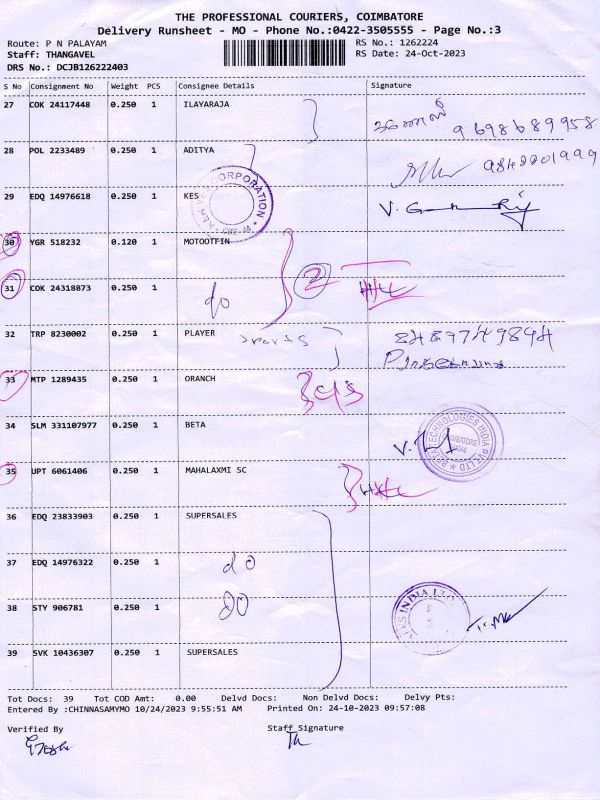 THE PROFESSIONAL COURIERS, COIMBATORE
Delivery Runsheet - MO - Phone No.:0422-3505555 - Page No.:3
Route: P N PALAYAM RS No.: 1262224
Staff: THANGAVEL RS Date: 24-Oct-2023
DRS No.: DCJB126222403
S No Consignment No Weight PCS Consignee Details Signature
27 COK 24117448 0.250 1 ILAYARAJA
9698689958
28 POL 2233489 0.250 1 ADITYA
9842201999
29 EDQ 14976618 0.250 1 KES
CORPORATION
30 YGR 518232 0.120 1 MOTOOTFIN
2
31 COK 24318873 0.250 1
do
32 TRP 8230002 0.250 1 PLAYER sports 8489749894
33 MTP 1289435 0.250 1 ORANCH
34 SLM 331107977 0.250 1 BETA
BETA TECHNOLOGIES INDIA PVT LTD
COIMBATORE
35 UPT 6061406 0.250 1 MAHALAXMI SC
36 EDQ 23833903 0.250 1 SUPERSALES
37 EDQ 14976322 0.250 1 do
38 STY 906781 0.250 1 do
INDIA
39 SVK 10436307 0.250 1 SUPERSALES
Tot Docs: 39 Tot COD Amt: 0.00 Delvd Docs: Non Delvd Docs: Delvy Pts:
Entered By :CHINNASAMYMO 10/24/2023 9:55:51 AM Printed On: 24-10-2023 09:57:08
Verified By Staff Signature